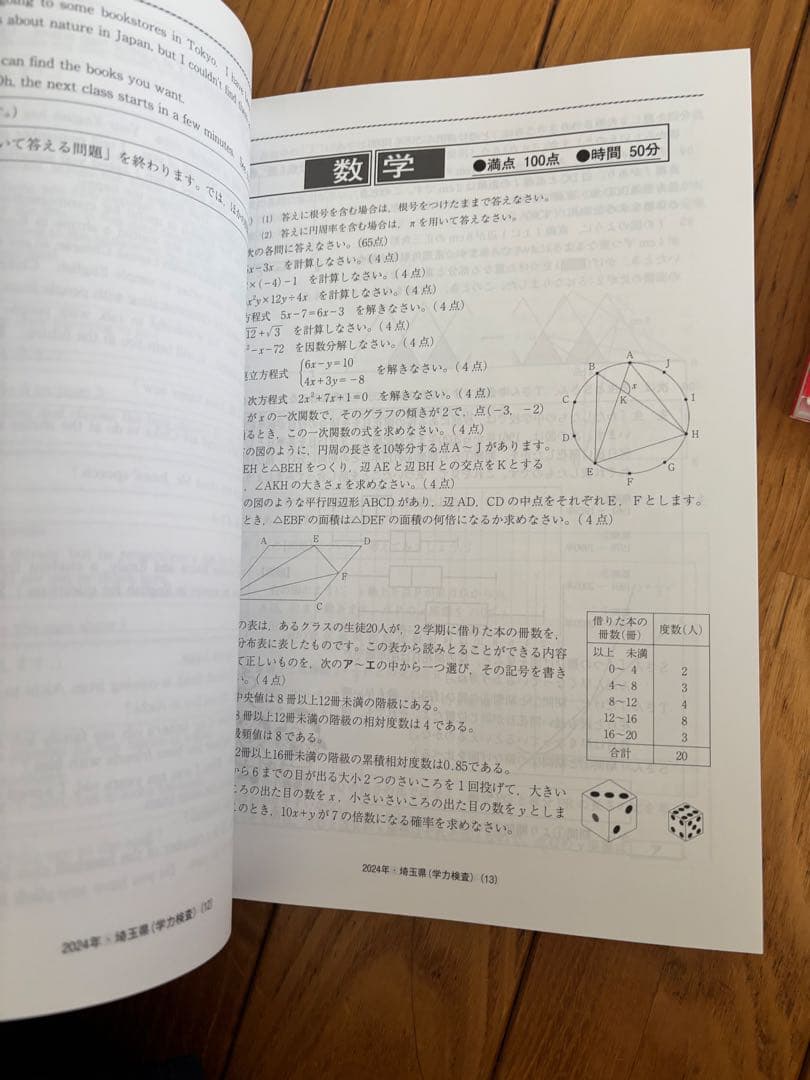 going to some bookstores in Tokyo. I have
about nature in Japan, but I couldn't find
can find the books you want.
Oh, the next class starts in a few minutes.
いて答える問題」を終わります。では、
2024年・埼玉県(学力検査) (12)
数学 ●満点 100点 ●時間 50分
(1) 答えに根号を含む場合は、根号をつけたままで答えなさい。
(2) 答えに円周率を含む場合は、πを用いて答えなさい。
次の各問に答えなさい。(65点)
x−3x を計算しなさい。(4点)
×(−4)−1 を計算しなさい。(4点)
x²y×12y÷4x を計算しなさい。(4点)
方程式 5x−7=6x−3 を解きなさい。(4点)
√12+√3 を計算しなさい。(4点)
²−x−72 を因数分解しなさい。(4点)
立方程式 {6x−y=10
4x+3y=−8 を解きなさい。(4点)
次方程式 2x²+7x+1=0 を解きなさい。(4点)
がxの一次関数で、そのグラフの傾きが2で、点(−3, −2)
るとき、この一次関数の式を求めなさい。(4点)
の図のように、円周の長さを10等分する点A〜Jがあります。
EHと△BEHをつくり、辺AEと辺BHとの交点をKとする
、∠AKHの大きさxを求めなさい。(4点)
A
B
J
x
K
C
I
D
H
E
G
F
の図のような平行四辺形ABCDがあり、辺AD、CDの中点をそれぞれE、Fとします。
とき、△EBFの面積は△DEFの面積の何倍になるか求めなさい。(4点)
A E D
F
C
の表は、あるクラスの生徒20人が、2学期に借りた本の冊数を、
分布表に表したものです。この表から読みとることができる内容
て正しいものを、次のア〜エの中から一つ選び、その記号を書き
い。(4点)
中央値は8冊以上12冊未満の階級にある。
8冊以上12冊未満の階級の相対度数は4である。
最頻値は8である。
2冊以上16冊未満の階級の累積相対度数は0.85である。
借りた本の冊数(冊) 度数(人)
以上 未満
0〜4 2
4〜8 3
8〜12 4
12〜16 8
16〜20 3
合計 20
から6までの目が出る大小2つのさいころを1回投げて、大きい
ころの出た目の数をx、小さいさいころの出た目の数をyとしま
このとき、10x+yが7の倍数になる確率を求めなさい。
2024年・埼玉県(学力検査) (13)